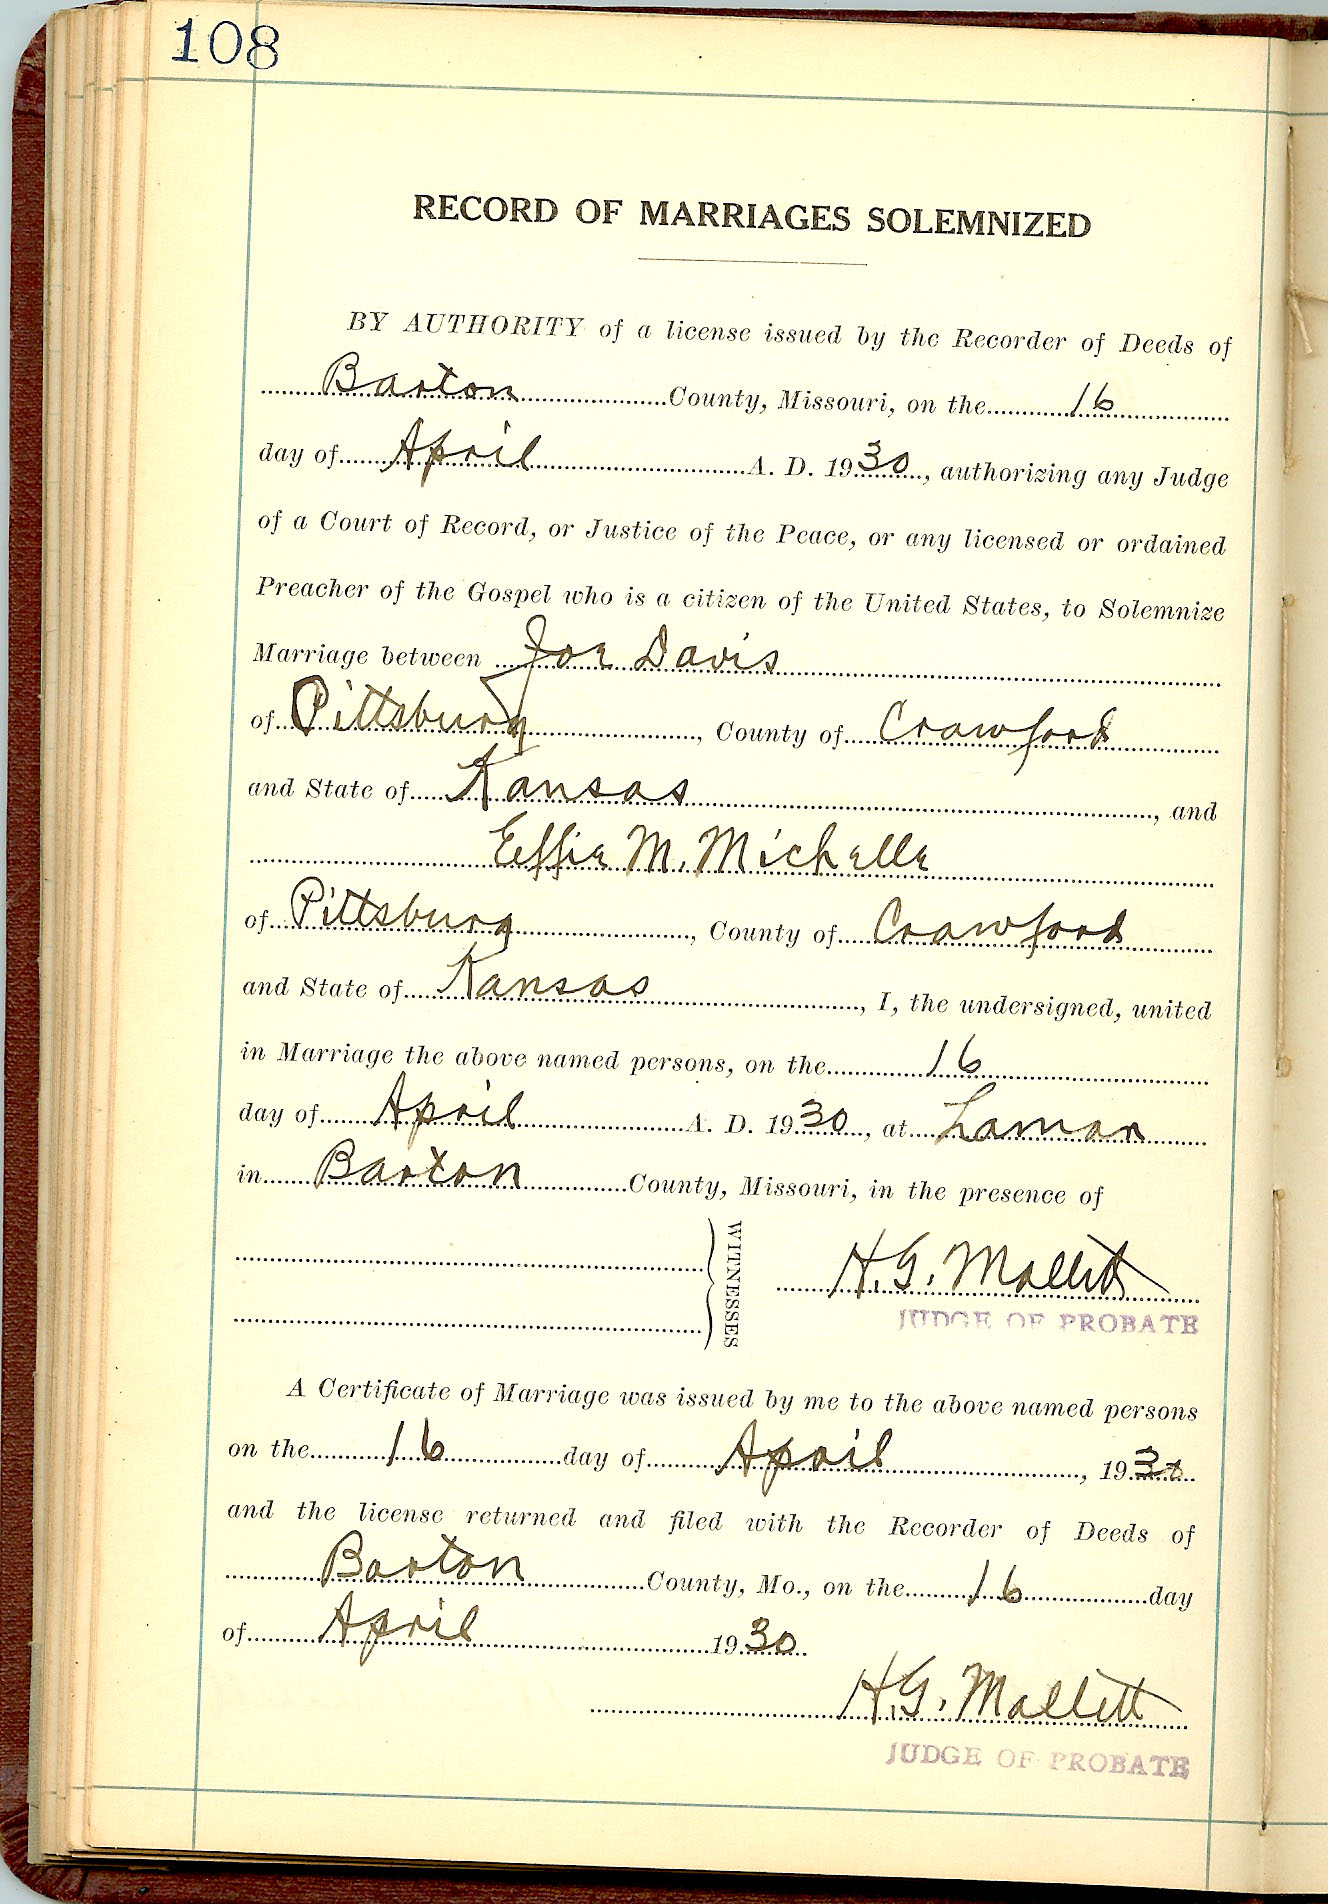 108
RECORD OF MARRIAGES SOLEMNIZED
BY AUTHORITY of a license issued by the Recorder of Deeds of
Barton County, Missouri, on the 16
day of April A. D. 1930, authorizing any Judge
of a Court of Record, or Justice of the Peace, or any licensed or ordained
Preacher of the Gospel who is a citizen of the United States, to Solemnize
Marriage between Joe Davis
of Pittsburg, County of Crawford
and State of Kansas, and
Effie M. Michelle
of Pittsburg, County of Crawford
and State of Kansas, I, the undersigned, united
in Marriage the above named persons, on the 16
day of April A. D. 1930, at Lamar
in Barton County, Missouri, in the presence of
WITNESSES
H.G. Mallett
JUDGE OF PROBATE
A Certificate of Marriage was issued by me to the above named persons
on the 16 day of April, 1930
and the license returned and filed with the Recorder of Deeds of
Barton County, Mo., on the 16 day
of April 1930.
H.G. Mallett
JUDGE OF PROBATE